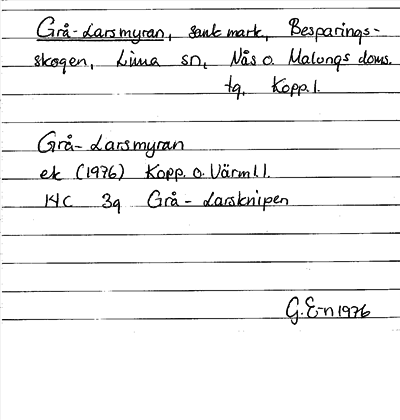 Grå-Larsmyran, sank mark, Besparings-
skogen, Lima sn, Nås o. Malungs doms.
tg, Kopp.l.
Grå-Larsmyran
ek (1976) Kopp. o. Värml.l.
14C 3g Grå-Larsknipen
G.E-n 1976